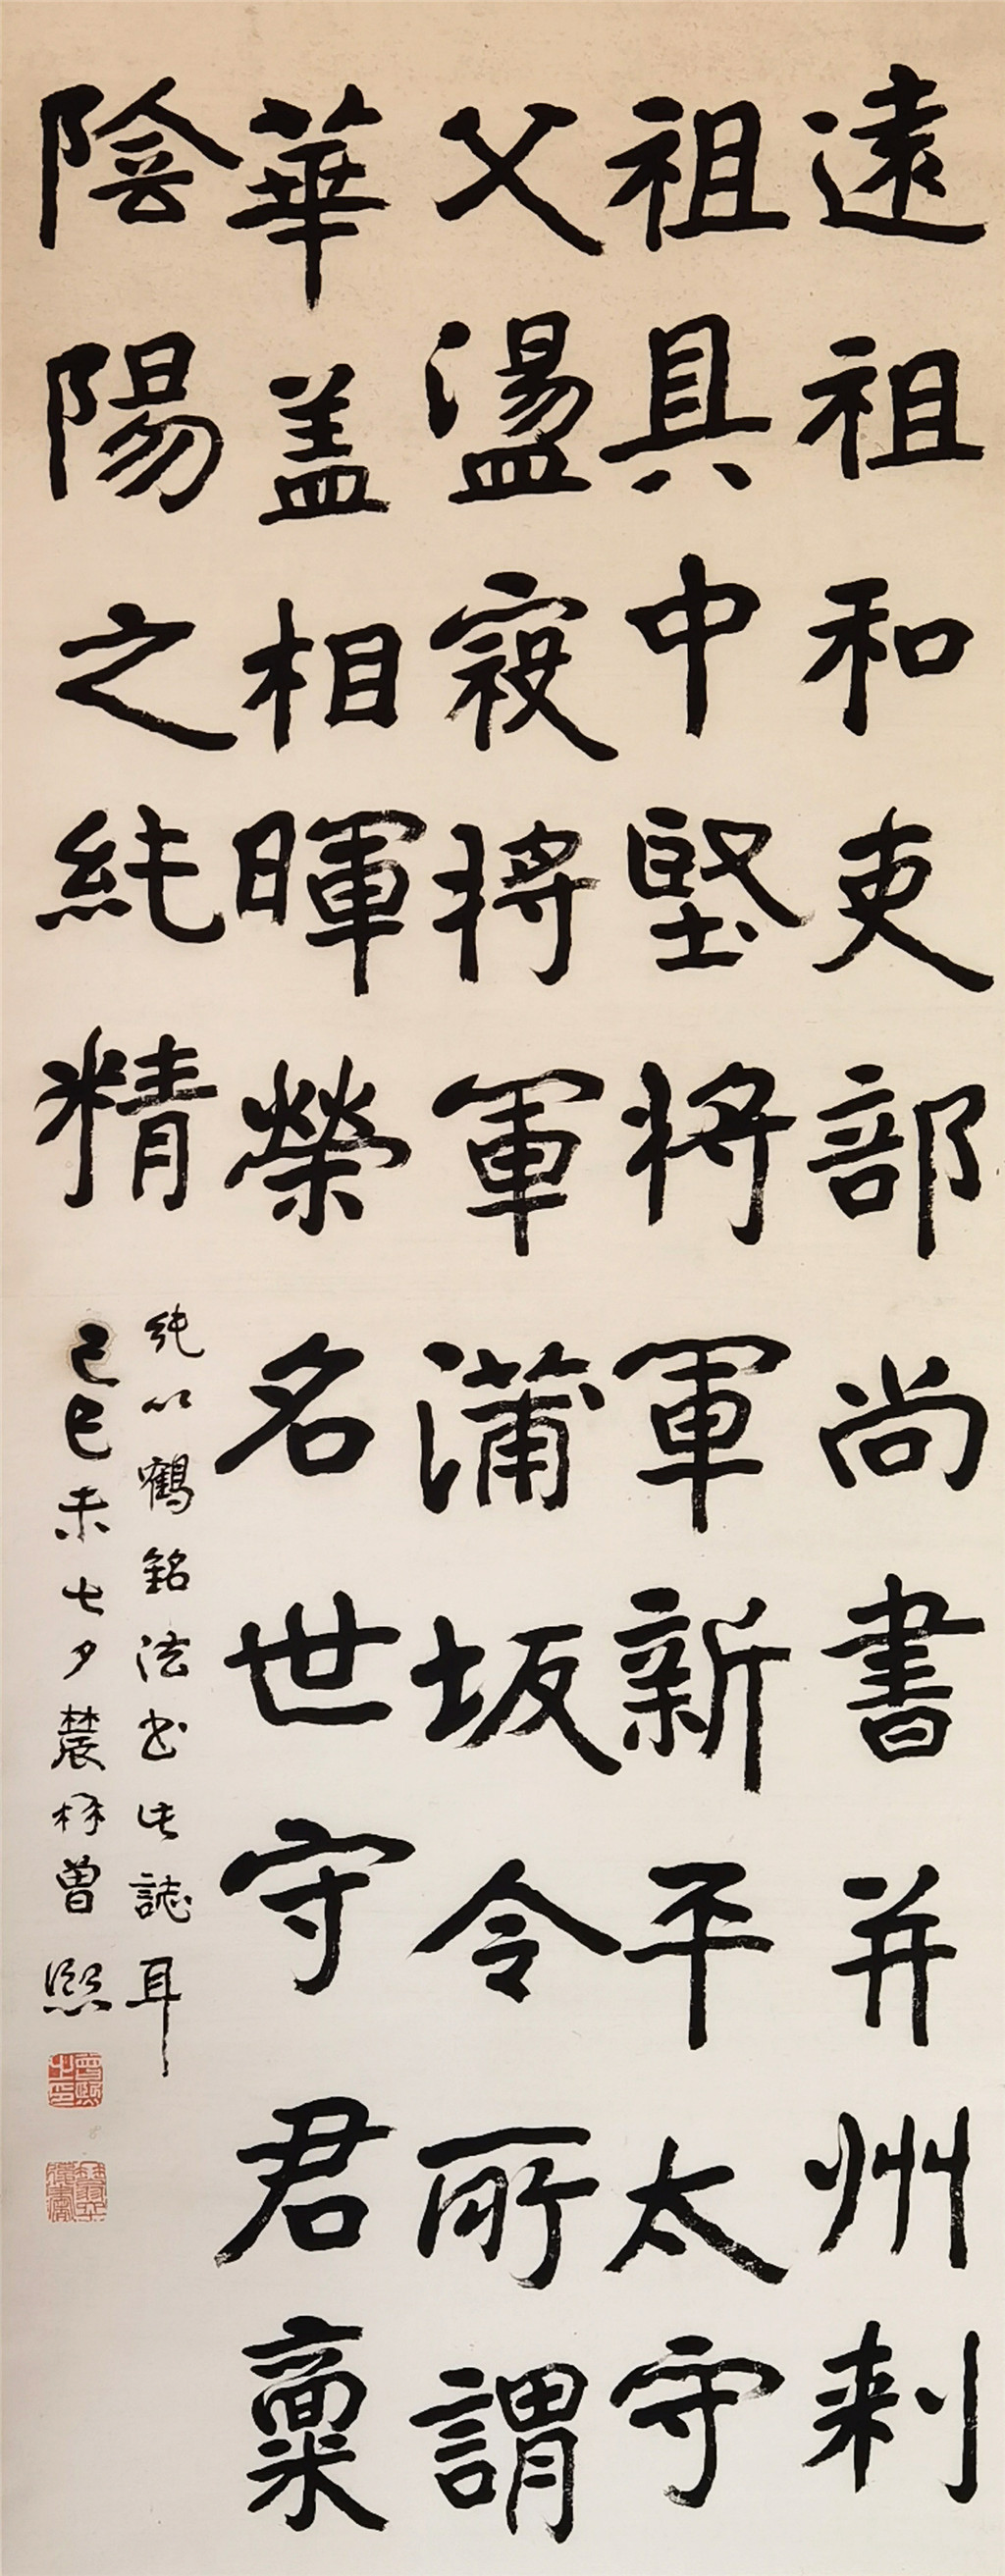 遠祖和吏部尚書并州刺
祖具中堅將軍新平太守
父盪寇將軍蒲坂令所謂
華蓋相暉榮名世守君稟
陰陽之純精
純以鶴銘法書此誌耳
己巳未七夕農髯曾熙
曾熙之印